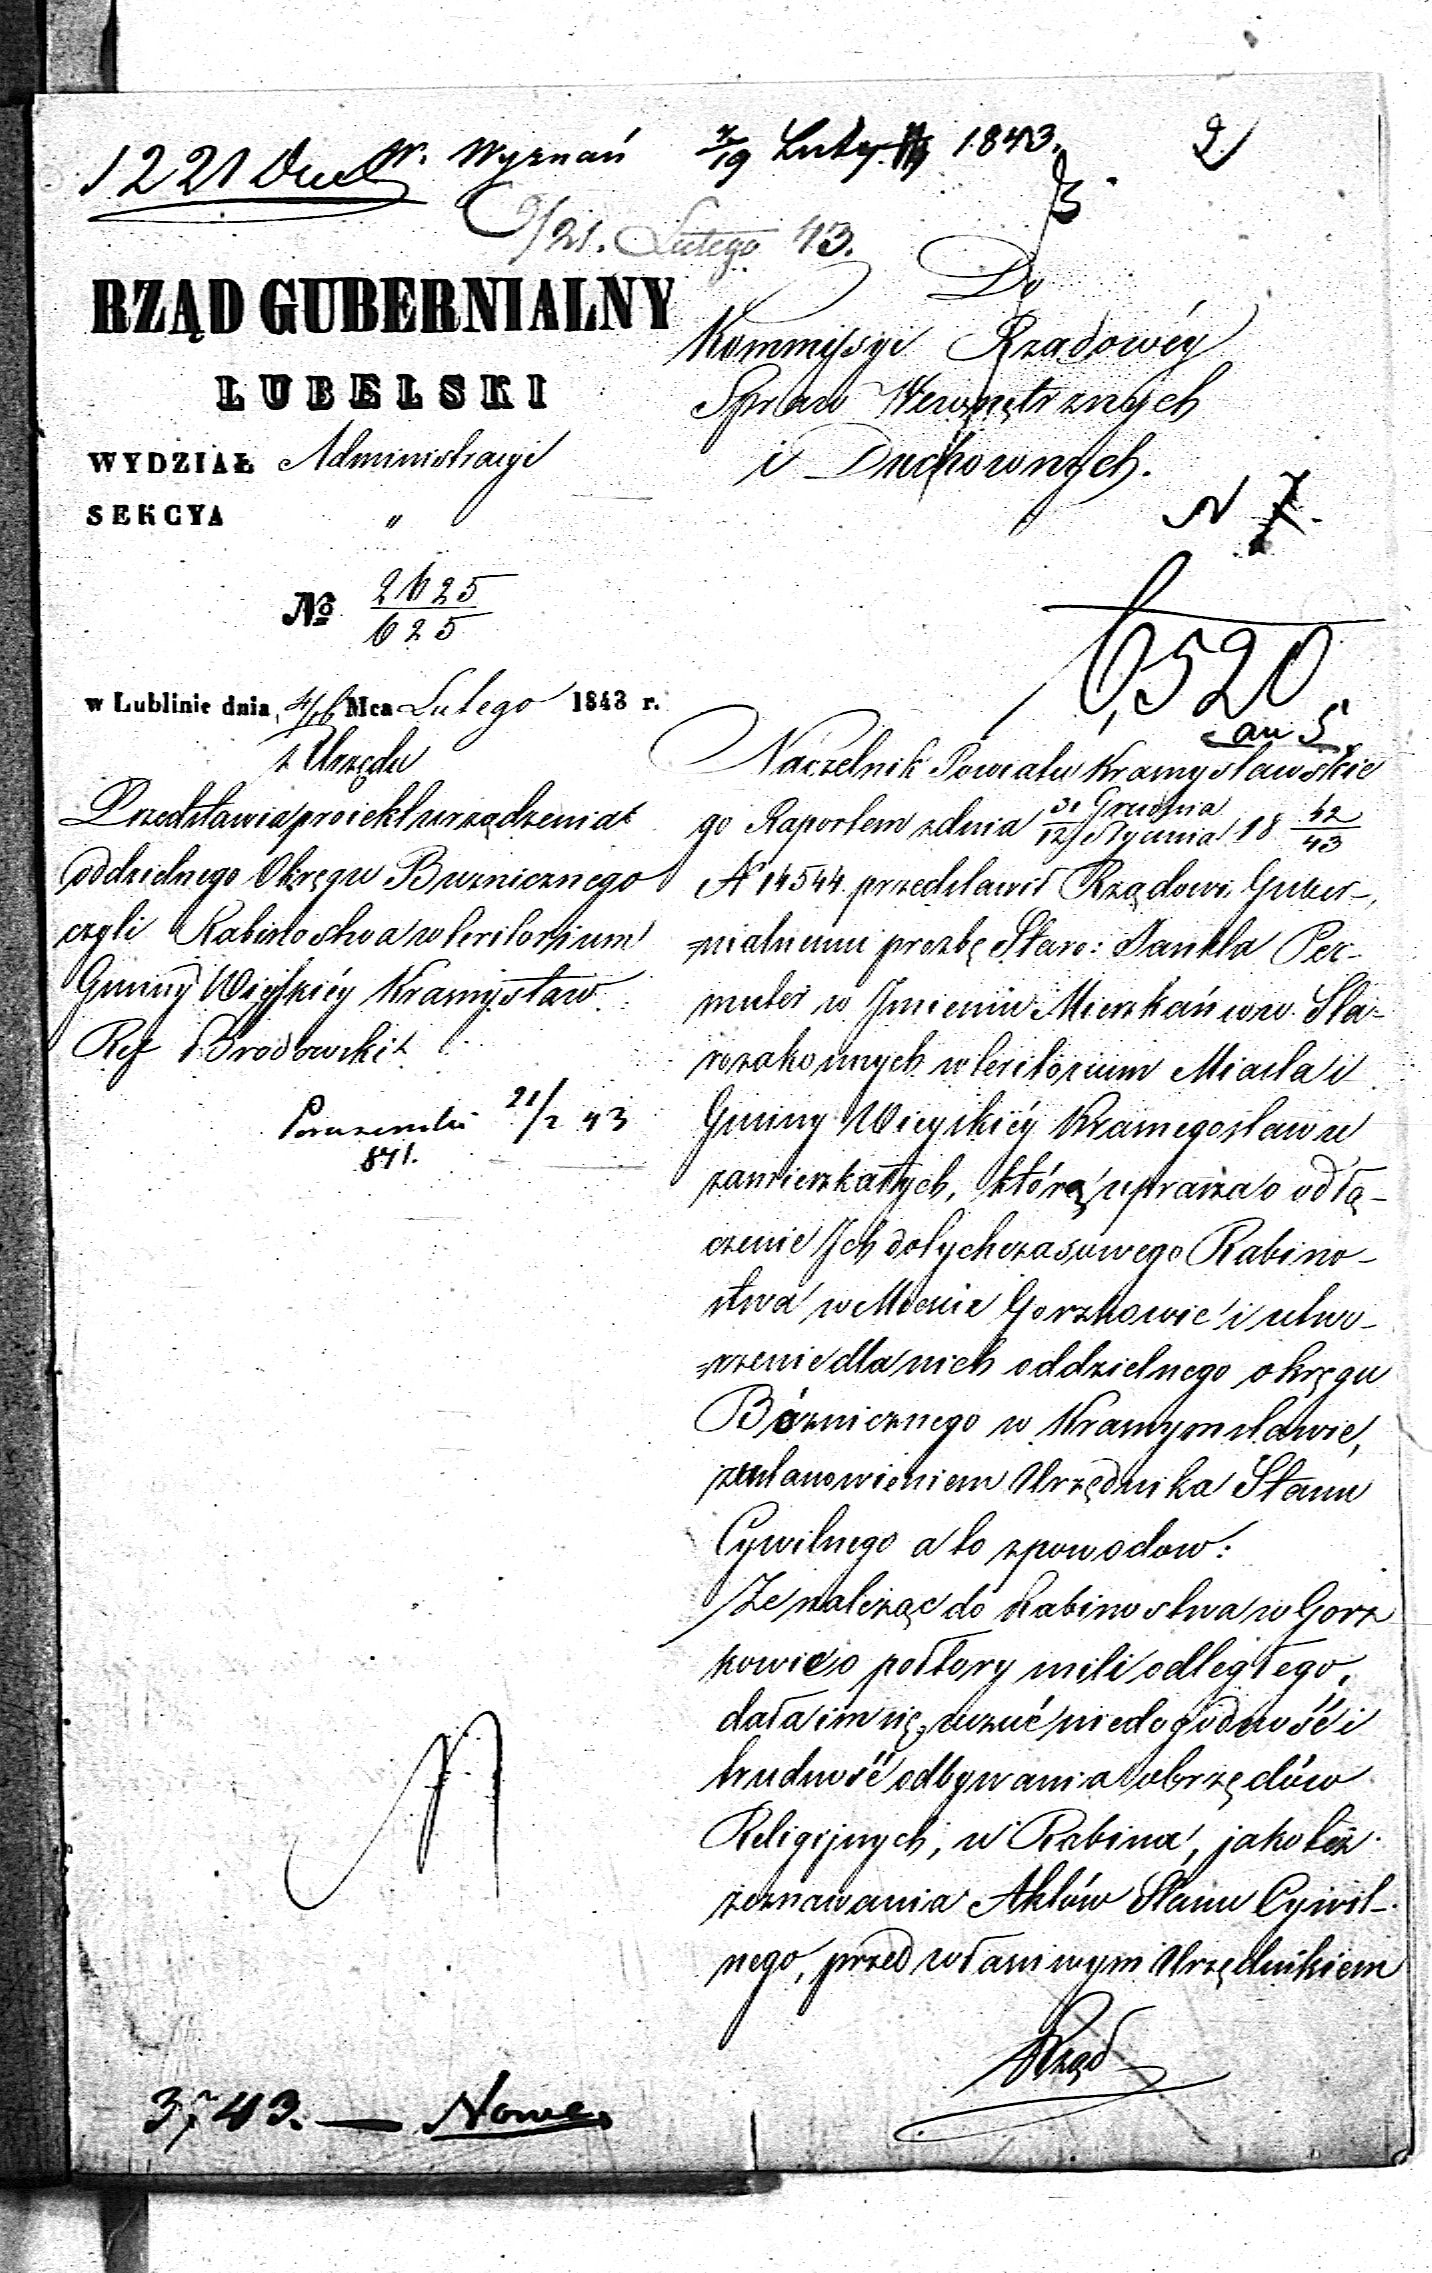 1221 W. Wyznań 7/19 Luty 1843. 2
9/21. Lutego 43.
RZĄD GUBERNIALNY
LUBELSKI
WYDZIAŁ Administracyi
SEKCYA "
No 2625/625
w Lublinie dnia 4/16 Mca Lutego 1843 r.
z Urzędu
Przedstawia proiekt urządzenia
oddzielnego Okręgu Buznicznego
czyli Rabinostwa w teritorium
Gminy Wieyskiéy Kramystaw
Ref Brodowski
21/2 43
871.
3/7 43. — Nowe
Do
Kommissyi Rządowéy
Spraw Wewnętrznych
i Duchownych.
N 7.
6,520
an 5
Naczelnik Powiatu Kramysławskie
go Raportem z dnia 31 Grudnia/12 Stycznia 18 42/43
N 14544. przedstawił Rządowi Guber-
nialnemu prozbę Staro: Jankla Per-
muter w Jmieniu Mieszkańców Sta-
rozakonnych w teritorium Miasta i
Gminy Wieyskiéy Kramegostawu
zamieszkałych, którą uprasza o odłą-
czenie Jch dotychczasowego Rabino-
stwa w Mieście Gorzkowie i utwo-
rzenie dla nich oddzielnego okręgu
Bóżnicznego w Kramymstawie,
z ustanowieniem Urzędnika Stanu
Cywilnego a to z powodow:
Ze należąc do Rabinostwa w Gorz
kowie o połtory mili odległego,
dała im się uczuć niedogodność i
trudność odbywania obrzędów
Religijnych, u Rabina, jako też
zeznawania Aktów Stanu Cywil-
nego, przed właściwym Urzędnikiem
Rząd